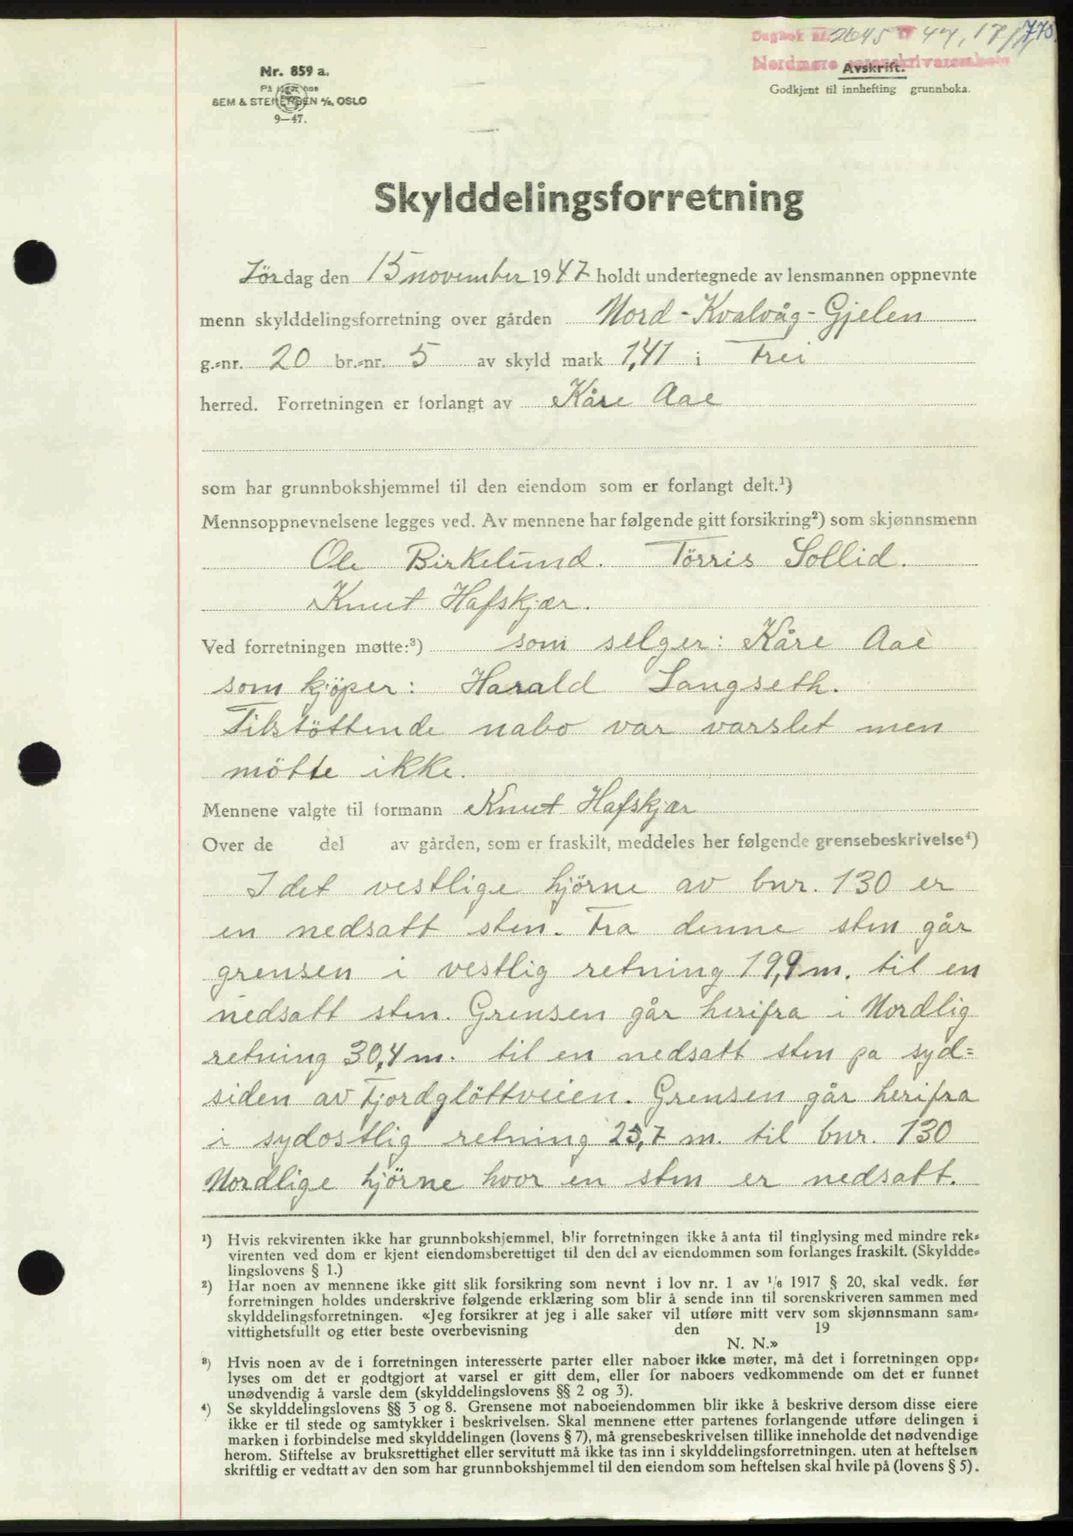 Dagbok nr. 2645 19 47, 17/11 775
Nordmøre sorenskriverembete
Avskrift.
Godkjent til innhefting i grunnboka.
Nr. 859 a.
På lager hos
SEM & STENERSEN A/S, OSLO
9—47.
Skylddelingsforretning
Lördag den 15 november 1947 holdt undertegnede av lensmannen oppnevnte
menn skylddelingsforretning over gården Nord-Kvalvåg-Gjelen
g.-nr. 20 br.-nr. 5 av skyld mark 1,41 i Frei
herred. Forretningen er forlangt av Kåre Aae
som har grunnbokshjemmel til den eiendom som er forlangt delt.¹)
Mennsoppnevnelsene legges ved. Av mennene har følgende gitt forsikring²) som skjønnsmenn
Ole Birkelund. Tørris Sollid.
Knut Hafskjær.
Ved forretningen møtte:³) som selger: Kåre Aae
som kjöper: Harald Langseth.
Tilstöttende nabo var varslet men
mötte ikke.
Mennene valgte til formann Knut Hafskjær
Over de del av gården, som er fraskilt, meddeles her følgende grensebeskrivelse⁴)
I det vestlige hjörne av bnr. 130 er
en nedsatt sten. Fra denne sten går
grensen i vestlig retning 19,9 m. til en
nedsatt sten. Grensen går herifra i Nordlig
retning 30,4 m. til en nedsatt sten pa syd-
siden av Fjordglöttveien. Grensen går herifra
i sydostlig retning 25,7 m. til bnr. 130
Nordlige hjörne hvor en sten er nedsatt.
¹) Hvis rekvirenten ikke har grunnbokshjemmel, blir forretningen ikke å anta til tinglysing med mindre rek-
virenten ved dom er kjent eiendomsberettiget til den del av eiendommen som forlanges fraskilt. (Skyldde-
lingslovens § 1.)
²) Har noen av mennene ikke gitt slik forsikring som nevnt i lov nr. 1 av 1/6 1917 § 20, skal vedk. før
forretningen holdes underskrive følgende erklæring som blir å sende inn til sorenskriveren sammen med
skylddelingsforretningen. «Jeg forsikrer at jeg i alle saker vil utføre mitt verv som skjønnsmann sam-
vittighetsfullt og etter beste overbevisning den 19
N. N.»
³) Hvis noen av de i forretningen interesserte parter eller naboer ikke møter, må det i forretningen opp-
lyses om det er godtgjort at varsel er gitt dem, eller for naboers vedkommende om det er funnet
unødvendig å varsle dem (skylddelingslovens §§ 2 og 3).
⁴) Se skylddelingslovens §§ 3 og 8. Grensene mot naboeiendommen blir ikke å beskrive dersom disse eiere
ikke er til stede og samtykker i beskrivelsen. Skal mennene etter partenes forlangende utføre delingen i
marken i forbindelse med skylddelingen (lovens § 7), må grensebeskrivelsen tillike inneholde det nødvendige
herom. Stiftelse av bruksrettighet eller servitutt må ikke tas inn i skylddelingsforretningen. uten at heftelsen
skriftlig er vedtatt av den som har grunnbokshjemmel til den eiendom som heftelsen skal hvile på (lovens § 5).